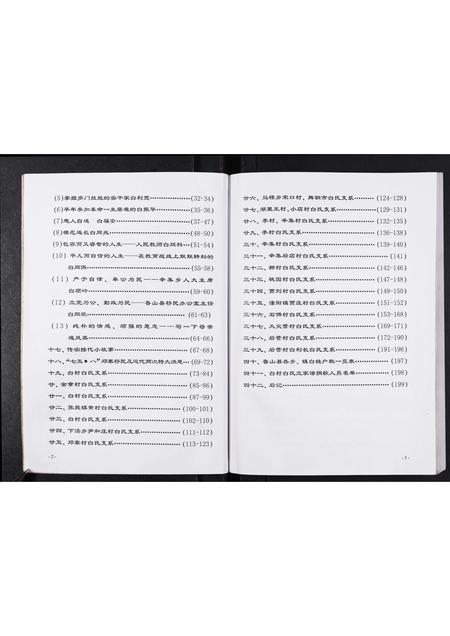 (5)掌握多门技能的实干家白利克 (32-34)
(6)早年参加革命一生坚准的白振华 (35-36)
(7)恩人白进 白福安 (37-47)
(8)模范连长白同兆 (48-50)
(9)包容而又睿智的人生——人民教师白同科 (51-54)
(10)平凡而自信的人生——在教育战线上默默耕耘的
白同保 (55-58)
(11)严于自律、奉公为民——辛集乡人大主席
白顺岭 (59-60)
(12)立党为公、勤政为民——鲁山县移民办公室主任
白同欣 (61-63)
(13)纯朴的情感、顽强的意志——写一下母亲
连凤英 (64-66)
十七、传宗接代小故事 (67-68)
十八、“七五•八”邓寨移民及近代两次特大洪患 (69-72)
十九、白村白氏支系 (73-84)
廿、金章村白氏支系 (85-86)
廿一、白村白氏支系 (87-99)
廿二、张良镇黄村白氏支系 (100-101)
廿三、白村白氏支系 (102-110)
廿四、下汤乡尹和庄村白氏支系 (111-112)
廿五、邓寨村白氏支系 (113-123)
-2-
廿六、马楼乡宋口村、舞钢市白氏支系 (124-128)
廿七、湖里王村、小店村白氏支系 (129-131)
廿八、李村、辛集村白氏支系 (132-135)
廿九、李村白氏支系 (136-138)
三十、辛集村白氏支系 (139-140)
三十一、辛集后店村白氏支系 (141)
三十二、薛村白氏支系 (142-146)
三十三、桃园村白氏支系 (147-148)
三十四、贾刘村白氏支系 (149-150)
三十五、滍阳镇贾庄村白氏支系 (151-152)
三十六、石佛村白氏支系 (153-168)
三十七、大火营村白氏支系 (169-171)
三十八、后营村白氏支系 (172-190)
三十九、后营村白相长白氏支系 (191-196)
四十、鲁山县各乡、镇白姓户数一览表 (197)
四十一、白村白氏立家谱捐款人员名单 (198)
四十二、后记 (199)
-3-